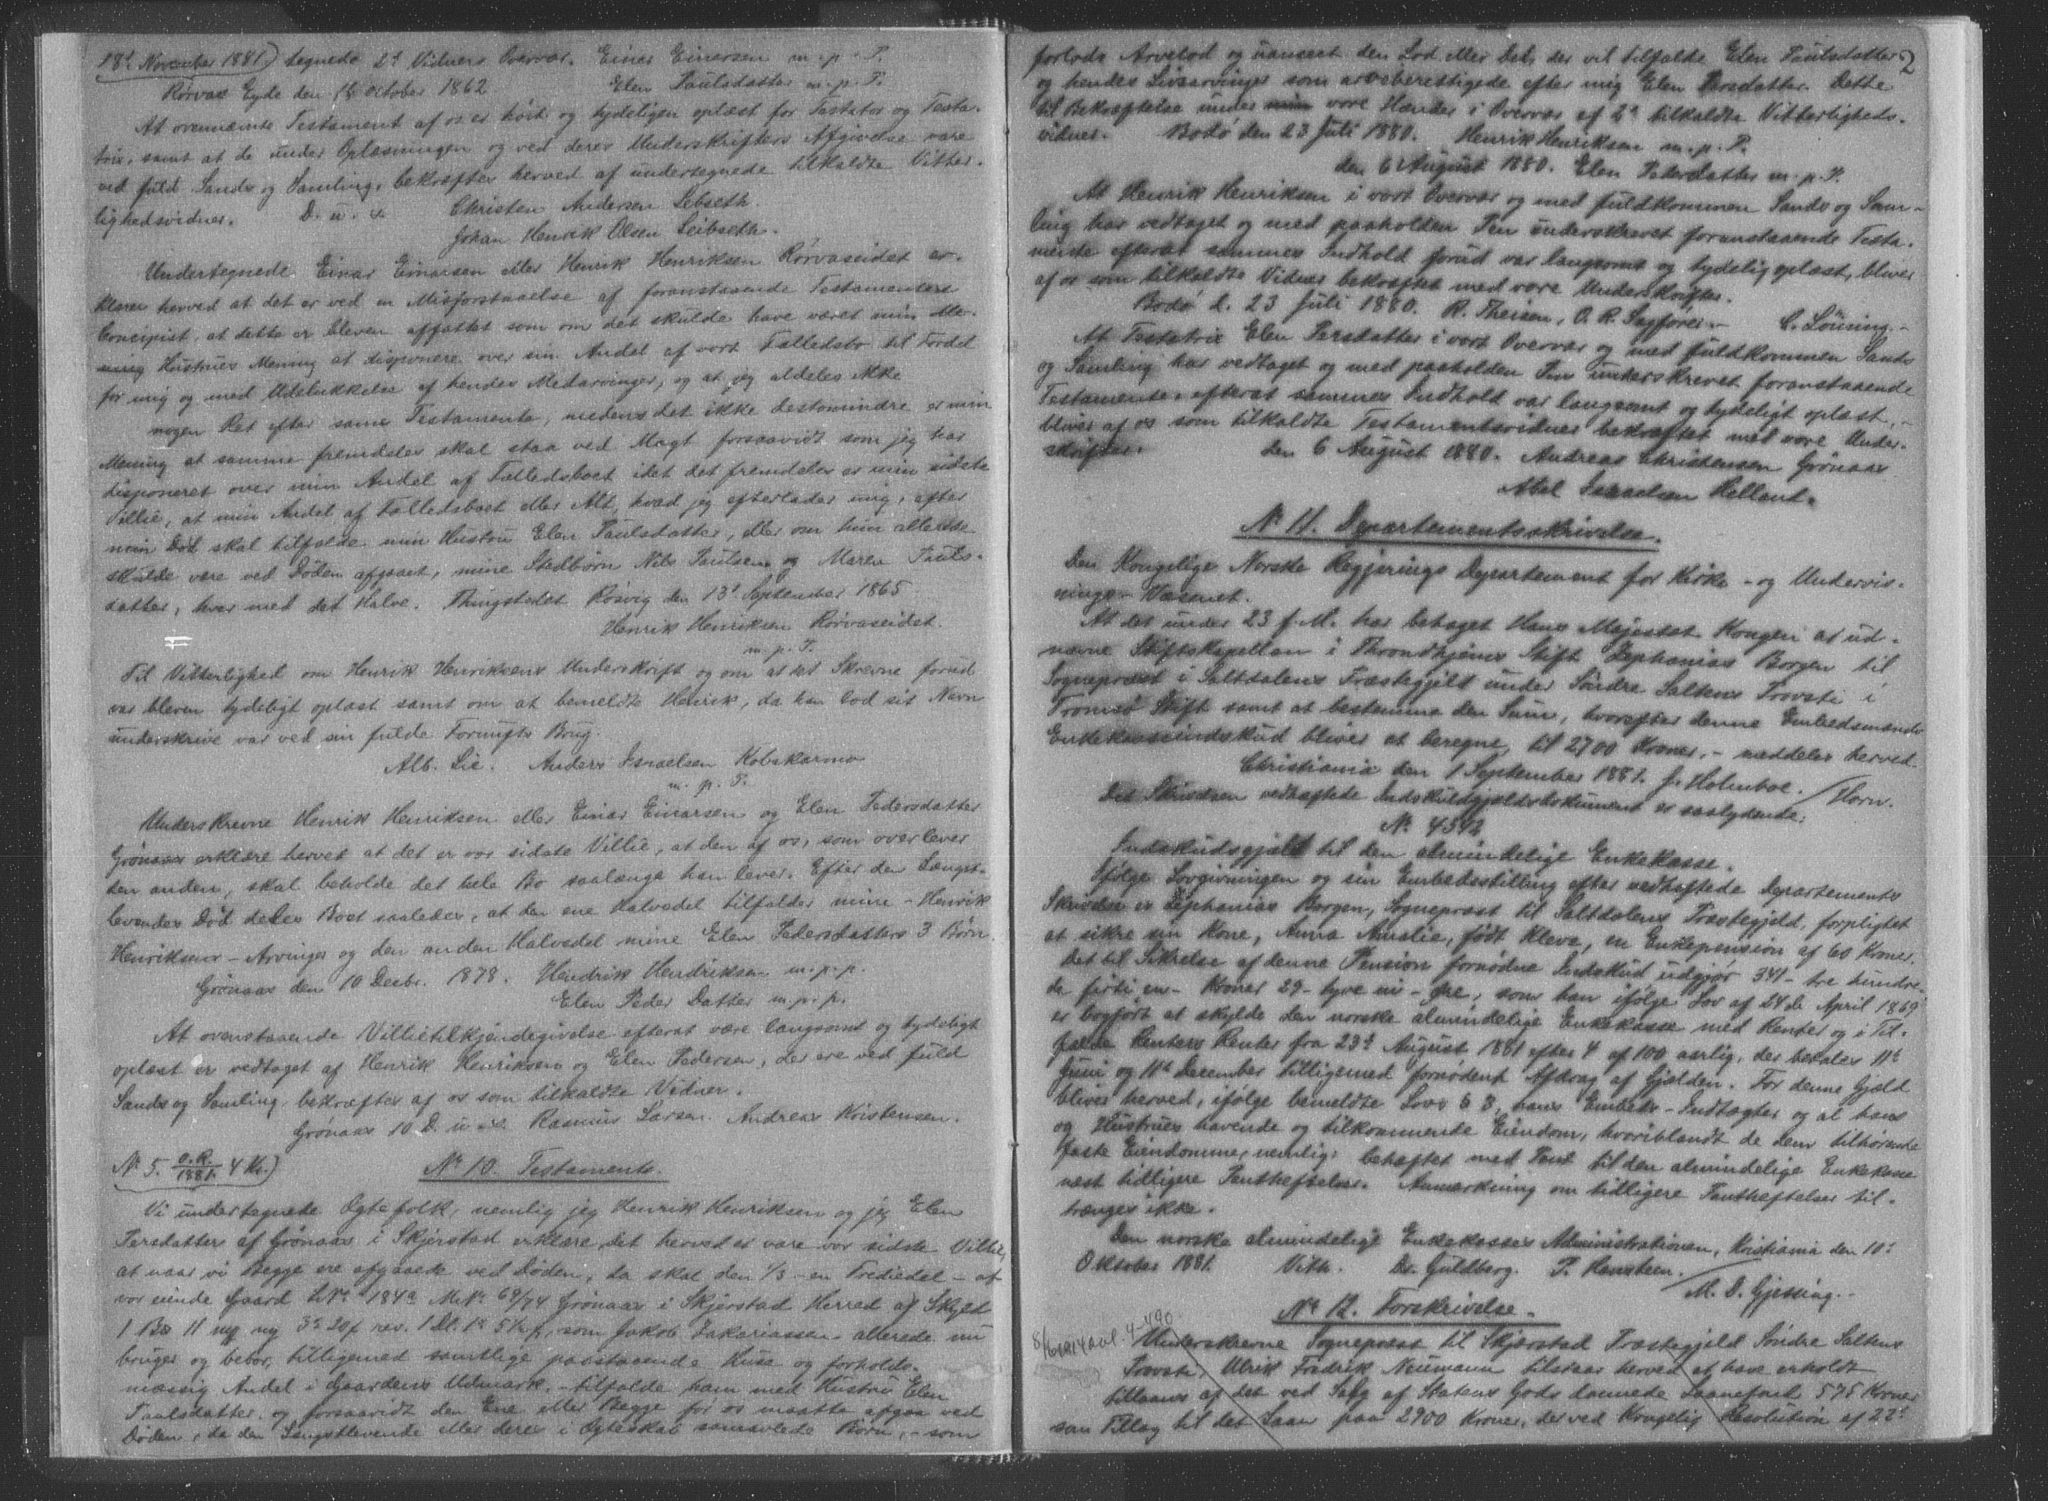 18de November 1881) tegnede 2de Vidners Overvær. Einar Einersen m. p. P.
Rørvas Eyde den 16 October 1862 Elen Paulsdatter m. p. P.
At ovennævnte Testament af os er høit og tydeligen oplæst for Testator og Testa-
trix, samt at de under Oplæsningen og ved deres Underskrifters Afgivelse vare
ved fuld Sands og Samling, bekræfter herved af undertegnede tilkaldte Vitter-
lighedsvidner. D. u. s. Christen Andersen Lebseth.
Johan Henrik Olsen Leibseth.
Undertegnede Einar Einarsen eller Henrik Henriksen Rørvaseidet er-
klærer herved at det er ved en Misforstaaelse af foranstaaende Testamenters
Concipist, at dette er bleven affattet som om det skulde have været min
Hustrues Mening at disponere over sin Andel af vort Fælledsbo til Fordel
for mig og med Udelukkelse af hendes Medarvinger, og at jeg aldeles ikke
nogen Ret efter same Testamente, medens det ikke destomindre er min
Mening at samme fremdeles skal staa ved Magt forsaavidt som jeg har
disponeret over min Andel af Fælledsboet idet det fremdeles er min sidste
Villie, at min Andel af Fælledsboet eller Alt, hvad jeg efterlader mig, efter
min Død skal tilfalde min Hustru Elen Paulsdatter, eller om hun allerede
skulde være ved Døden afgaaet, mine Stedbørn Nils Paulsen og Maren Pauls-
datter, hver med det Halve. Thingstedet Røsvig den 13de September 1865
Henrik Henriksen Rørvaseidet.
m. p. P.
Til Vitterlighed om Henrik Henriksens Underskrift og om at det Skrevne forud
var bleven tydeligt oplæst samt om at bemeldte Henrik, da han lod sit Navn
underskrive var ved sin fulde Fornufts Brug.
Alb. Lie. Anders Israelsen Kobskarmo
m. p. P.
Underskrevne Henrik Henriksen eller Einar Einarsen og Elen Pedersdatter
Grønaas erklære herved at det er vor sidste Villie, at den af os, som overlever
den anden, skal beholde det hele Bo saalænge han lever. Efter den Længst-
levendes Død deles Boet saaledes, at den ene Halvedel tilfalder mine - Henrik
Henriksens - Arvinger og den anden Halvedel mine Elen Pedersdatters 3 Børn.
Grønaas den 10 Decbr. 1878. Hendrik Hendriksen m. p. p.
Elen Peder Datter m. p. p.
At ovenstaaende Villietilkjendegivelse efterat være langsomt og tydeligt
oplæst er vedtaget af Henrik Henriksen og Elen Pedersen, der ere ved fuld
Sands og Samling, bekræftes af os som tilkaldte Vidner.
Grønaas 10 D. u. s. Rasmus Larsen. Andreas Kristensen.
No 5. O.R./1881. 4 Kr.) No 10. Testamente.
Vi undertegnede Ægtefolk, nemlig jeg Henrik Henriksen og jeg Elen
Persdatter af Grønaas i Skjerstad erklære, det herved er vare vor sidste Villie,
at naar vi Begge ere afgaaede ved Døden, da skal den 1/3 - en Trediedel - af
vor eiende Gaard LNo 184a MNo 69/74 Grønaas i Skjerstad Herred af Skyld
1 Bo 11 ny 3 20 rev. 1 Dl. 1 5 1/2 , som Jakob Zakariassen allerede nu
bruger og bebor, tilligemed samtlige paastaaende Huse og forholds-
mæssig Andel i Gaardens Udmark, - tilfalde ham med Hustru Elen
Paulsdatter, og forsaavidt den Ene eller Begge før os maatte afgaa ved
Døden, da den Længstlevende eller deres i Ægteskab sammavlede Børn, - som
2
forlods Arvelod og uanseet den Lod eller Del, der vil tilfalde Elen Paulsdatter
og hendes Livsarvinger som arveberettigede efter mig Elen Persdatter. Dette
til Bekræftelse under vore Hænder i Overvær af 2de tilkaldte Vitterligheds-
vidner. Bodø den 23 Juli 1880. Henrik Henriksen m. p. P.
den 6 August 1880. Elen Petersdatter m. p. P.
At Henrik Henriksen i vort Overvær og med fuldkommen Sands og Sam-
ling har vedtaget og med paaholden Pen underskrevet foranstaaende Testa-
mente efterat sammes Indhold forud var langsomt og tydelig oplæst, bliver
af os som tilkaldte Vidner bekræftet med vore Underskrifter.
Bodø d. 23 Juli 1880. R. Theisen, O. R. Sagfører. C. Lönsing.-
At Testatrix Elen Persdatter i vort Overvær og med fuldkommen Sands
og Samling har vedtaget og med paaholden Pen underskrevet foranstaaende
Testamente, efterat sammes Indhold var langsomt og tydeligt oplæst, -
bliver af os som tilkaldte Testamentsvidner bekræftet med vore Under-
skrifter. den 6 August 1880. Andreas Christensen Grönaas
Abel Israelsen Helland.
No 11. Departementsskrivelse.
Den Kongelige Norske Regjerings Departement for Kirke- og Undervis-
nings-Væsenet.
At det under 23 f. M. har behaget Hans Majestæt Kongen at ud-
nævne Stiftskapellan i Throndhjems Stift Zephanias Borgen til
Sognepræst i Saltdalens Præstegjeld under Söndre Saltens Provsti i
Tromsø Stift samt at bestemme den Sum, hvorefter denne Embedsmands
Enkekasseindskud bliver at beregne, til 2700 Kroner, - meddeles herved.
Christiania den 1 September 1881. J. Holmboe. / Horn.
Det Skrivelsen vedhæftede Indskudsgjeldsdokument er saalydende:
No 4342
Indskudsgjæld til den almindelige Enkekasse.
Ifølge Lovgivningen og sin Embedsstilling efter vedhæftede Departements
Skrivelse er Zephanias Borgen, Sognepræst til Saltdalens Præstegjeld, forpligtet
at sikre sin Kone, Anna Amalie, født Kleve, en Enkepension af 60 Kroner.
Det til Sikrelse af denne Pension fornødne Indskud udgjør 341 - tre hundre-
de firti en - Kroner 29 - tyve ni - Øre, som han ifølge Lov af 24de April 1869
er bogført at skylde den norske almindelige Enkekasse med Renter og i Til-
fælde Renters Renter fra 23de August 1881 efter 4 af 100 aarlig, der betales 11te
Juni og 11te December tilligemed fornødent Afdrag af Gjælden. For denne Gjæld
bliver herved, ifølge bemeldte Lovs § 8, hans Embeds-Indtægter og al hans
og Hustrues havende og tilkommende Eiendom, hvoriblandt de dem tilhørende
faste Eiendomme, nemlig: behæftet med Pant til den almindelige Enkekasse
næst tidligere Panthæftelser. Anmærkning om tidligere Panthæftelser til-
trænges ikke.
Den norske almindelige Enkekasses Administrationen, Kristiania den 10de
Oktober 1881. Vith. Dr. Guldberg. P. Hansteen.
/ M. D. Gjessing.-
No 12. Forskrivelse.
Underskrevne Sognepræst til Skjerstad Præstegjeld Söndre Saltens
Provsti, Ulrik Fredrik Neumann tilstaar herved at have erholdt
tillaans af det ved Salg af Statens Gods dannede Laanefond 575 Kroner
som Tillæg til det Laan paa 2900 Kroner, der ved Kongelig Resolution af 22de